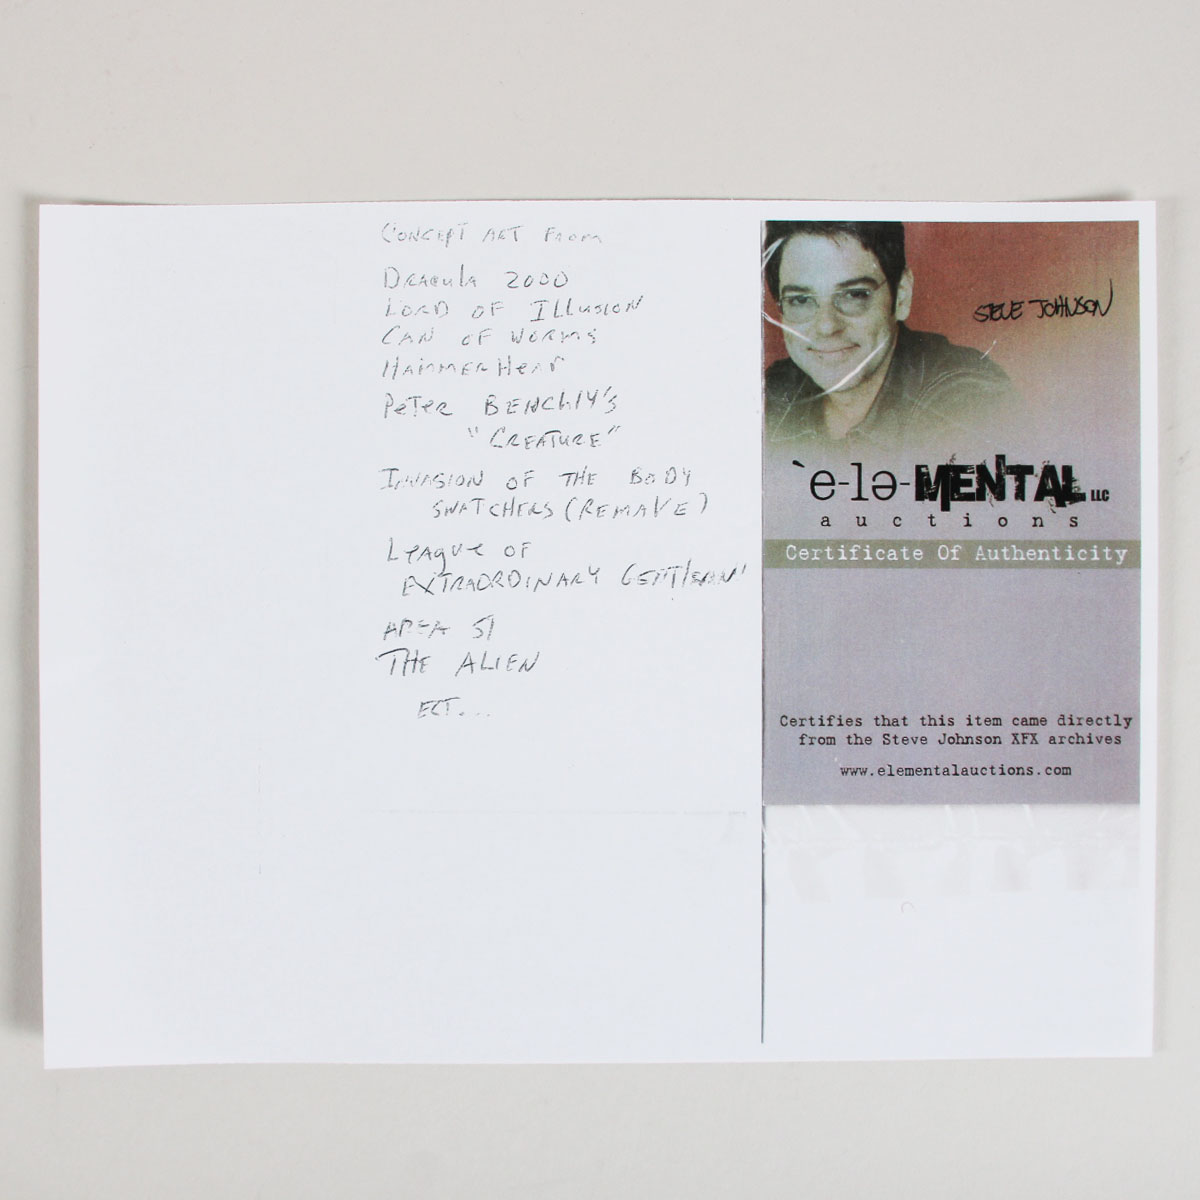 CONCEPT ART FROM
DRACULA 2000
LORD OF ILLUSION
CAN OF WORMS
HAMMERHEAD
PETER BENCHLY'S
"CREATURE"
INVASION OF THE BODY
SNATCHERS (REMAKE)
LEAGUE OF
EXTRAORDINARY
AREA 51
THE ALIEN
ECT...
STEVE JOHNSON
`e-lə-MENTAL LLC
auctions
Certificate Of Authenticity
Certifies that this item came directly
from the Steve Johnson XFX archives
www.elementalauctions.com